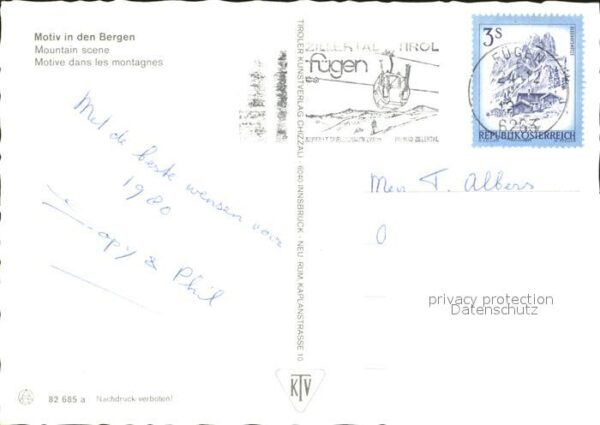 Motiv in den Bergen
Mountain scene
Motive dans les montagnes
Met de beste wensen voor
1980
& Phil
82 685 a Nachdruck verboten!
TIROLER KUNSTVERLAG CHIZZALI · 6040 INNSBRUCK · NEU RUM, KAPLANSTRASSE 10
KTV
ZILLERTAL TIROL
fügen
3S
REPUBLIK ÖSTERREICH
FÜGEN
6263
T. Albers
privacy protection
Datenschutz